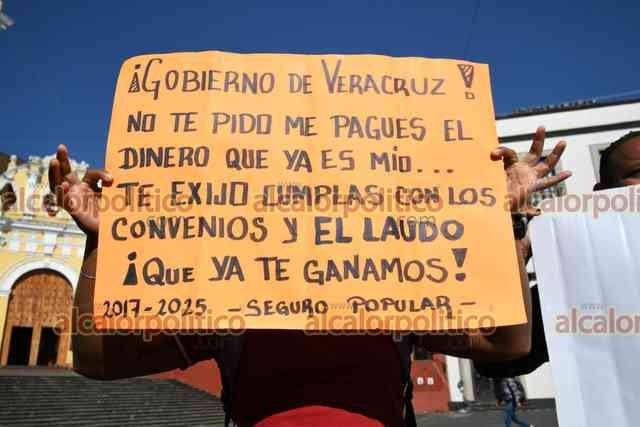 ¡GOBIERNO DE VERACRUZ!
NO TE PIDO ME PAGUES EL
DINERO QUE YA ES MÍO...
TE EXIJO CUMPLAS CON LOS
CONVENIOS Y EL LAUDO
¡QUE YA TE GANAMOS!
2017-2025. - SEGURO POPULAR -
alcalorpolitico